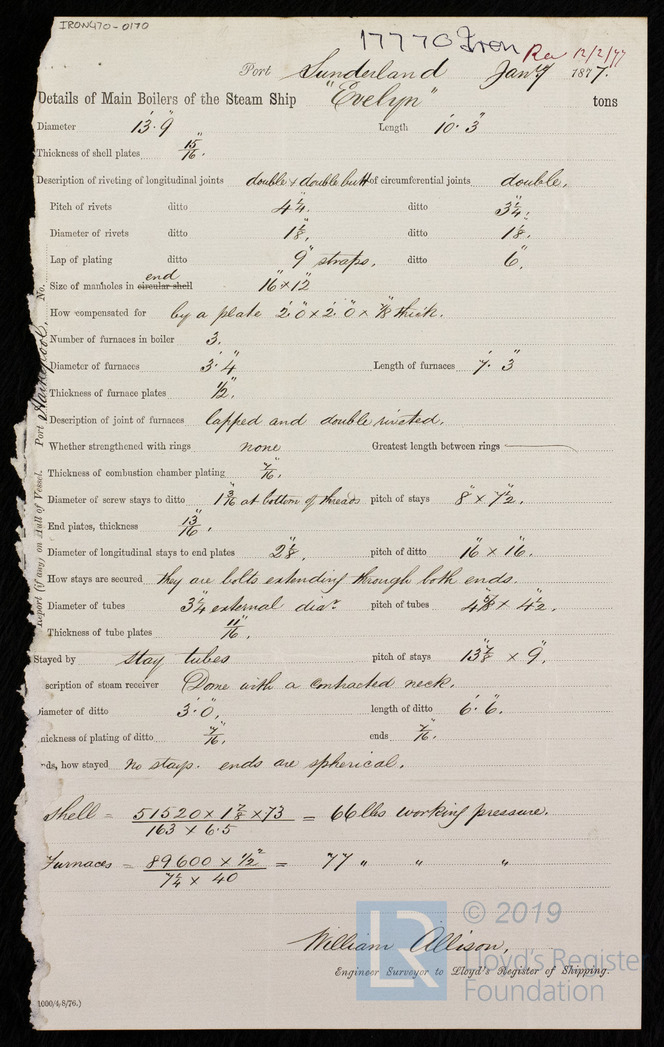 IRON470-0170
17770 Iron Rec 12/2/77
Port Sunderland Jany 1877.
Details of Main Boilers of the Steam Ship "Evelyn" tons
Diameter 13'.9" Length 10'.3"
Thickness of shell plates 15/16".
Description of riveting of longitudinal joints double & double butt of circumferential joints double.
Pitch of rivets ditto 4¼". ditto 3¼".
Diameter of rivets ditto 1⅛". ditto 1⅛".
Lap of plating ditto 9" straps. ditto 6".
Size of manholes in circular shell end 16" x 12"
How compensated for by a plate 2'.0" x 2'.0" x ⅞" thick.
Number of furnaces in boiler 3.
Diameter of furnaces 3'.4" Length of furnaces 7'.3"
Thickness of furnace plates ½".
Description of joint of furnaces lapped and double riveted.
Whether strengthened with rings none Greatest length between rings
Thickness of combustion chamber plating 7/16".
Diameter of screw stays to ditto 1 3/16" at bottom of threads pitch of stays 8" x 7½".
End plates, thickness 13/16".
Diameter of longitudinal stays to end plates 2⅛". pitch of ditto 16" x 16".
How stays are secured they are bolts extending through both ends.
Diameter of tubes 3¼" external diar. pitch of tubes 4⅝" x 4½".
Thickness of tube plates 11/16".
Stayed by stay tubes pitch of stays 13⅞" x 9".
scription of steam receiver Dome with a contracted neck.
Diameter of ditto 3'.0". length of ditto 6'.6".
hickness of plating of ditto 7/16". ends 7/16".
ds, how stayed No stays. ends are spherical.
Shell = 51520 x 1⅞ x 73 / 163 x 6.5 = 66 lbs working pressure.
Furnaces = 89600 x ½² / 7¼ x 40 = 77 " " "
William Allison,
Engineer Surveyor to Lloyd's Register of Shipping.
1000/4/8/76.)
Report (if any) on Hull of Vessel. Port Hartlepool. No.
LR
© 2019
Lloyd's Register
Foundation